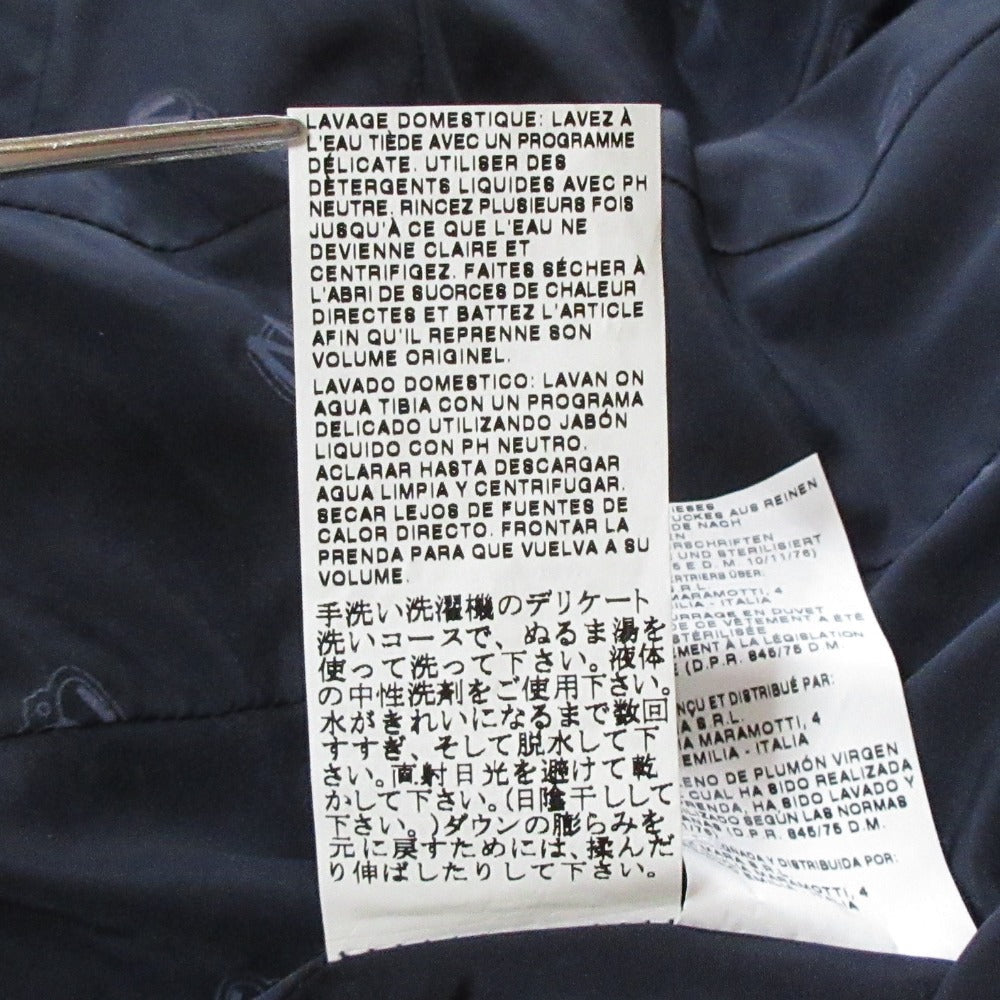 LAVAGE DOMESTIQUE: LAVEZ À
L'EAU TIÈDE AVEC UN PROGRAMME
DÉLICATE. UTILISER DES
DÈTERGENTS LIQUIDES AVEC PH
NEUTRE. RINCEZ PLUSIEURS FOIS
JUSQU'À CE QUE L'EAU NE
DEVIENNE CLAIRE ET
CENTRIFIGEZ. FAITES SÉCHER À
L'ABRI DE SUORCES DE CHALEUR
DIRECTES ET BATTEZ L'ARTICLE
AFIN QU'IL REPRENNE SON
VOLUME ORIGINEL.
LAVADO DOMESTICO: LAVAN ON
AGUA TIBIA CON UN PROGRAMA
DELICADO UTILIZANDO JABÓN
LIQUIDO CON PH NEUTRO.
ACLARAR HASTA DESCARGAR
AGUA LIMPIA Y CENTRIFUGAR.
SECAR LEJOS DE FUENTES DE
CALOR DIRECTO. FRONTAR LA
PRENDA PARA QUE VUELVA A SU
VOLUME.
手洗い洗濯機のデリケート
洗いコースで、ぬるま湯を
使って洗って下さい。液体
の中性洗剤をご使用下さい。
水がきれいになるまで数回
すすぎ、そして脱水して下
さい。直射日光を避けて乾
かして下さい。(日陰干しして
下さい。)ダウンの膨らみを
元に戻すためには、揉んだ
り伸ばしたりして下さい。
IESES
UCKES AUS REINEN
DE NACH
RSCHRIFTEN
UND STERILISIERT
E D. M. 10/11/76)
ERTRIERS ÜBER:
R.L.
MARAMOTTI, 4
MILIA - ITALIA
URRAGE EN DUVET
DE CE VÊTEMENT A ÉTÉ
STÉRILISÉE
MENT À LA LÉGISLATION
(D.P.R. 845/75 D.M.
NÇU ET DISTRIBUÉ PAR:
A S.R.L.
IA MARAMOTTI, 4
EMILIA - ITALIA
LENO DE PLUMÓN VIRGEN
CUAL HA SIDO REALIZADA
RENDA, HA SIDO LAVADO Y
LIZADO SEGÚN LAS NORMAS
(D.P.R. 845/75 D.M.
ONADA Y DISTRIBUIDA POR:
MARA S.R.L.
MARAMOTTI, 4